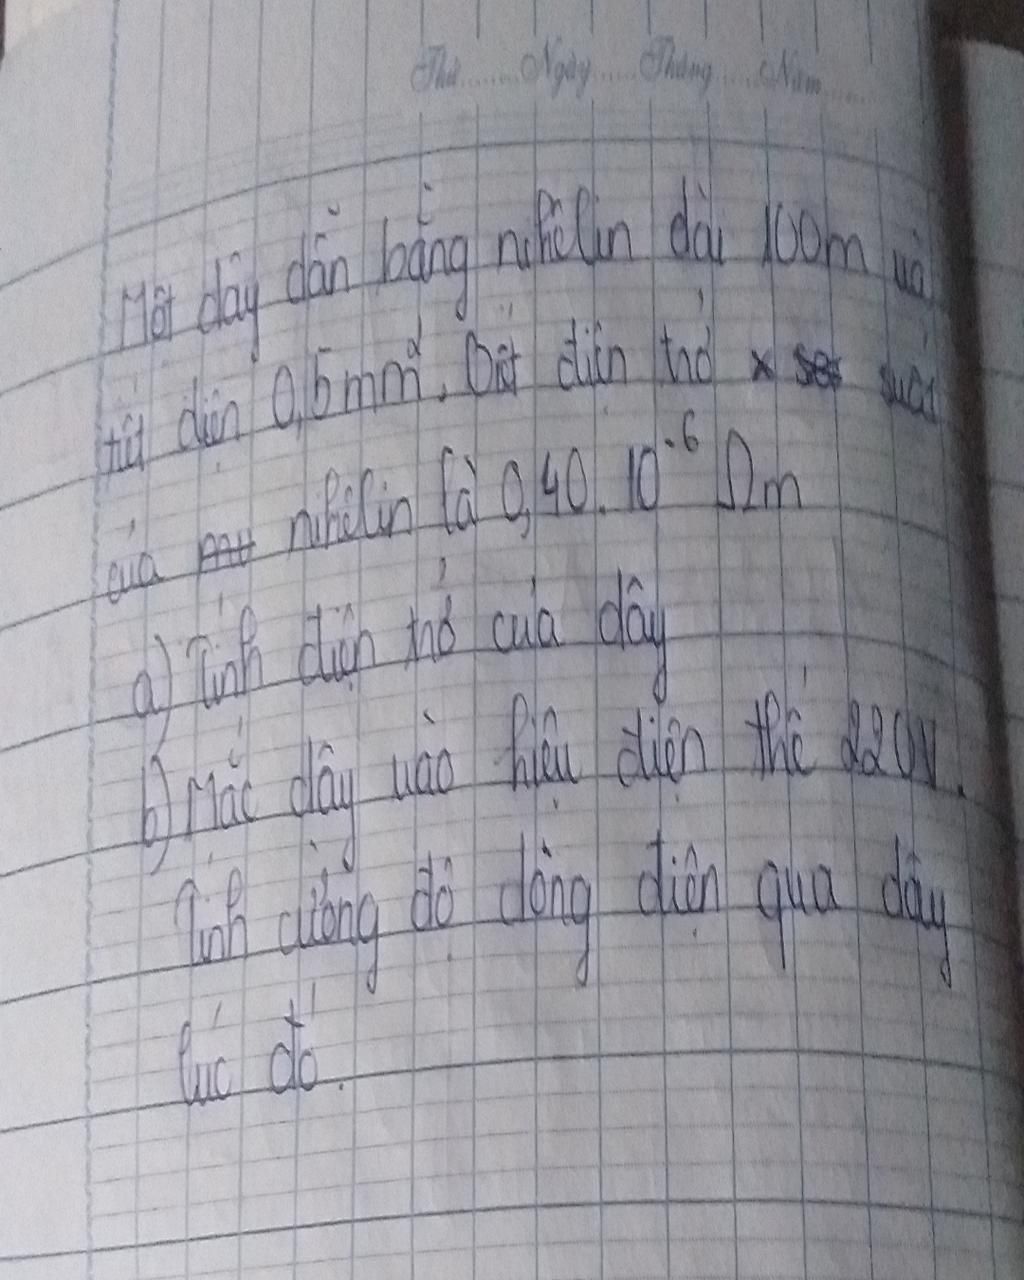 Thứ...... Ngày...... Tháng...... Năm......
Một dây dẫn bằng nikêlin dài 100m và
tiết diện 0,5mm². Biết điện trở suất
của nikêlin là 0,40.10⁻⁶ Ωm
a) Tính điện trở của dây
b) Mắc dây vào hiệu điện thế 220V.
Tính cường độ dòng điện qua dây
lúc đó.